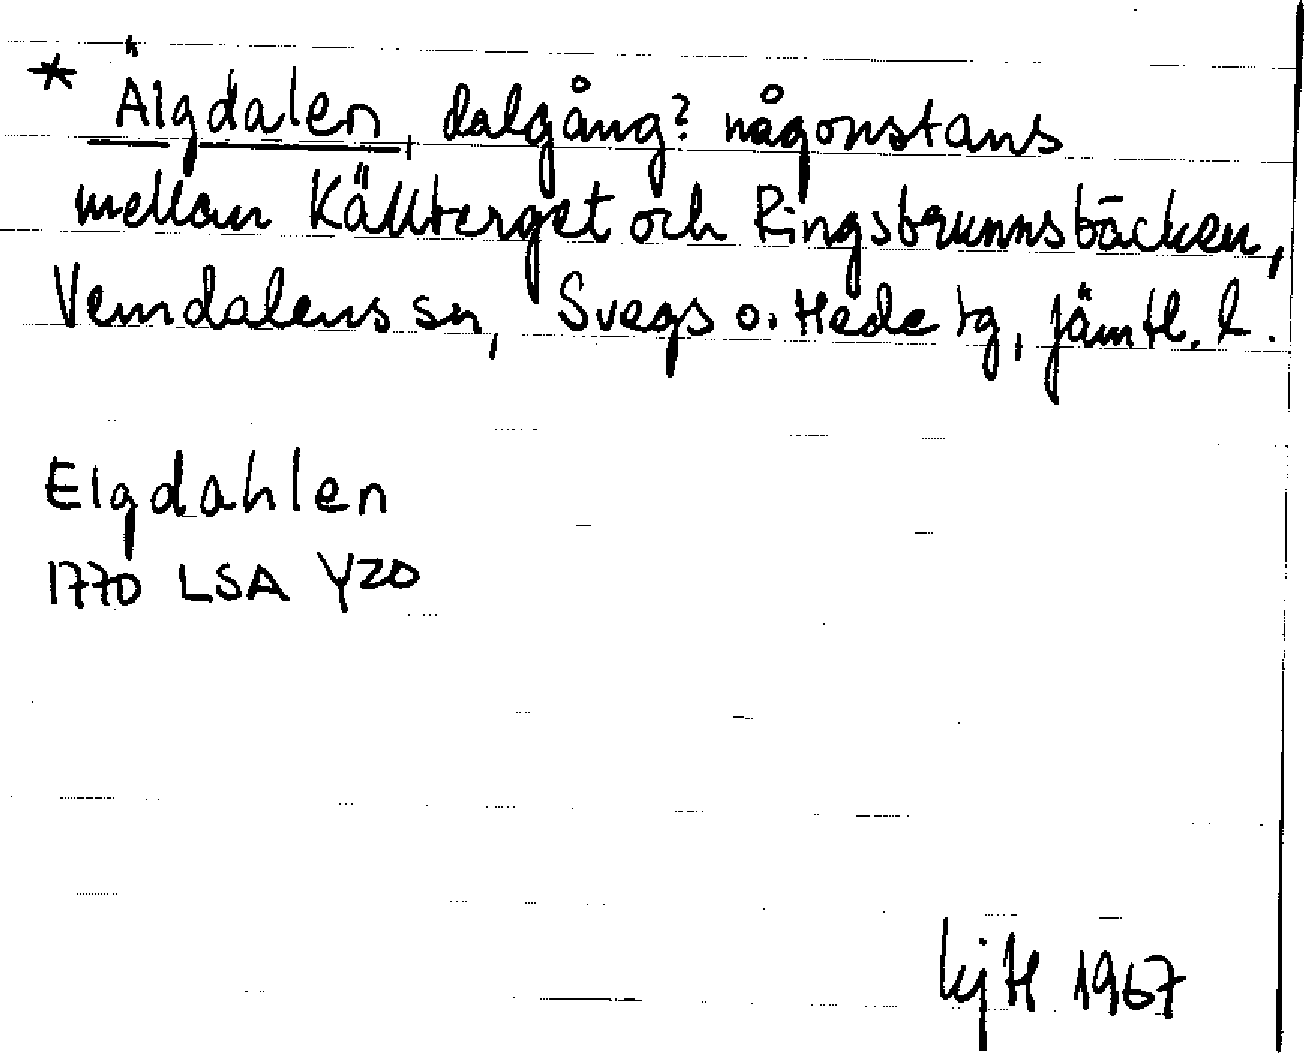 * Älgdalen, dalgång? någonstans
mellan Källberget och Ringsbrunnsbäcken,
Vemdalens sn, Svegs o. Hede tg, Jämtl. l.
Elgdahlen
1770 LSA Y20
KjH 1967